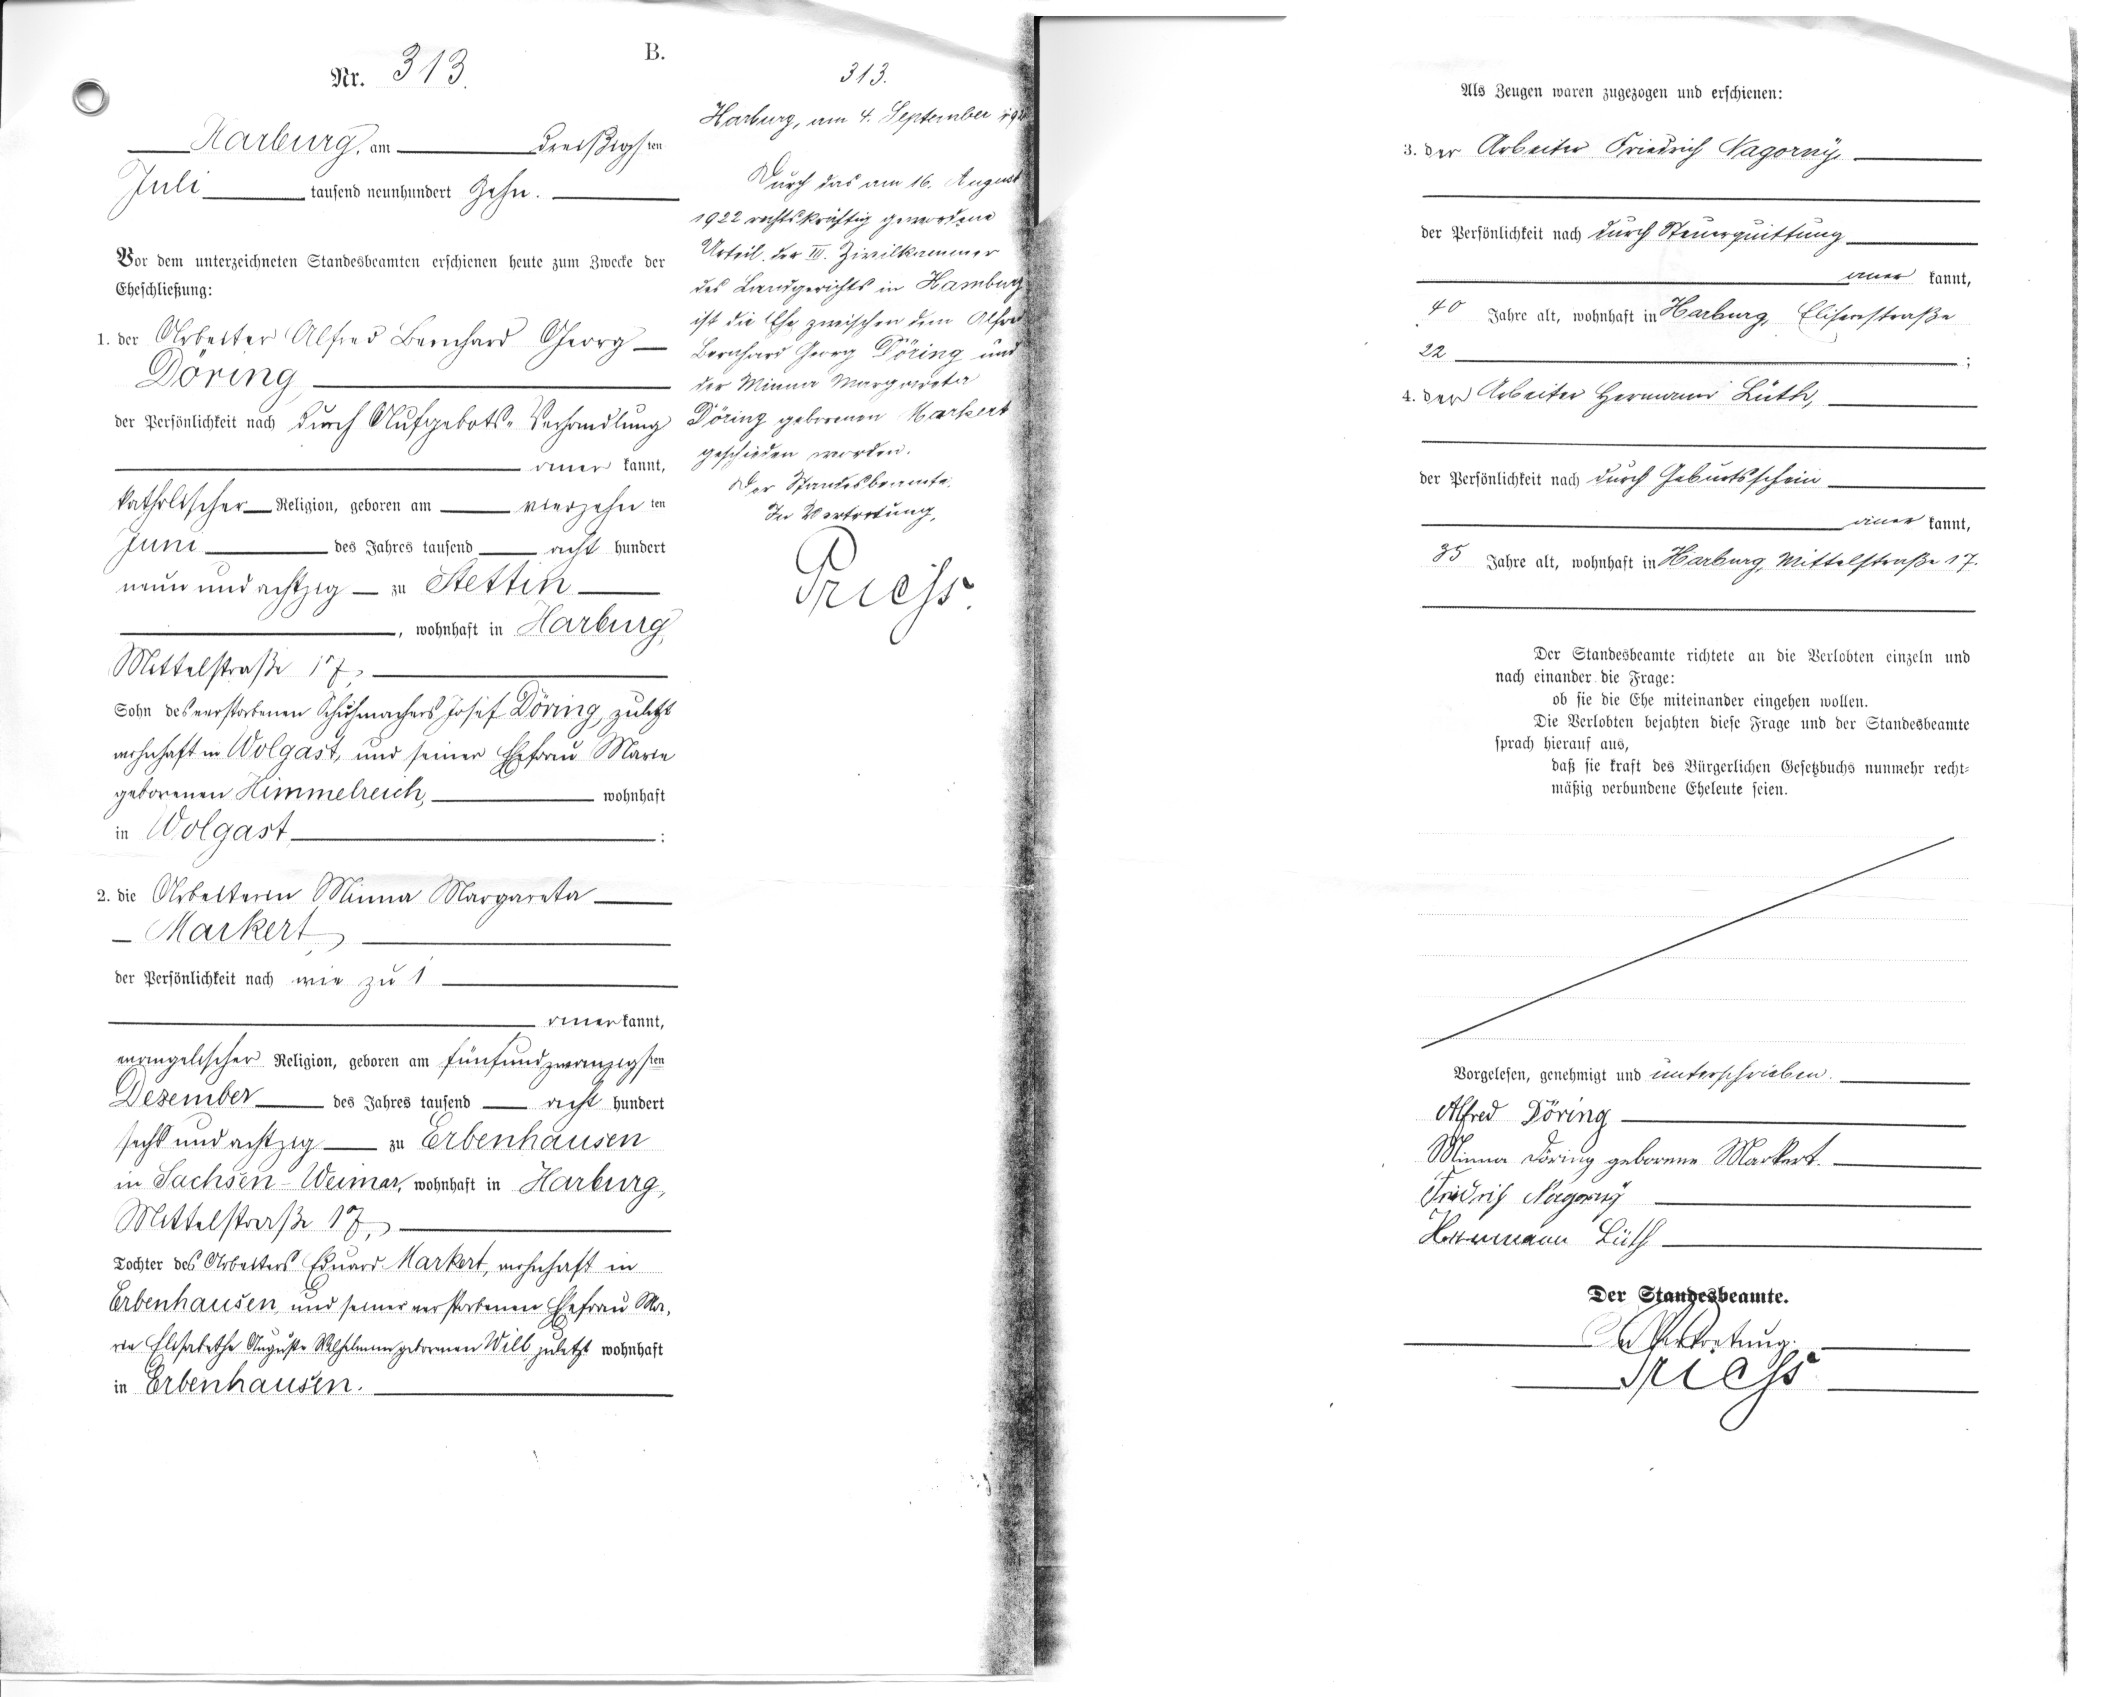 B.
Nr. 313.
Harburg, am dreißigsten
Juli tausend neunhundert zehn.
Vor dem unterzeichneten Standesbeamten erschienen heute zum Zwecke der
Eheschließung:
1. der Arbeiter Alfred Bernhard Georg
Döring
der Persönlichkeit nach durch Aufgebots-Verhandlung
anerkannt,
katholischer Religion, geboren am vierzehnten
Juni des Jahres tausend acht hundert
neun und achtzig zu Stettin
, wohnhaft in Harburg,
Mittelstraße 17,
Sohn des verstorbenen Schuhmachers Josef Döring, zuletzt
wohnhaft in Wolgast, und seiner Ehefrau Marie
geborenen Himmelreich, wohnhaft
in Wolgast ;
2. die Arbeiterin Minna Margareta
Markert,
der Persönlichkeit nach wie zu 1
anerkannt,
evangelischer Religion, geboren am fünfundzwanzigsten
Dezember des Jahres tausend acht hundert
sechs und achtzig zu Erbenhausen
in Sachsen-Weimar, wohnhaft in Harburg,
Mittelstraße 17,
Tochter des Arbeiters Eduard Markert, wohnhaft in
Erbenhausen, und seiner verstorbenen Ehefrau Ma-
rie Elisabethe Auguste Wilhelmine geborenen Will zuletzt wohnhaft
in Erbenhausen.
313.
Harburg, am 4. September
Durch das am 16. August
1922 rechtskräftig gewordene
Urteil der III. Zivilkammer
des Landgerichts in Hamburg
ist die Ehe zwischen dem Alfred
Bernhard Georg Döring und
der Minna Margareta
Döring geborenen Markert
geschieden worden.
Der Standesbeamte.
In Vertretung,
Priess.
Als Zeugen waren zugezogen und erschienen:
3. der Arbeiter Friedrich Nagorny,
der Persönlichkeit nach durch Steuerquittung
anerkannt,
40 Jahre alt, wohnhaft in Harburg, Elisenstraße
22 ;
4. der Arbeiter Hermann Lüth,
der Persönlichkeit nach durch Geburtsschein
anerkannt,
35 Jahre alt, wohnhaft in Harburg, Mittelstraße 17.
Der Standesbeamte richtete an die Verlobten einzeln und
nach einander die Frage:
ob sie die Ehe miteinander eingehen wollen.
Die Verlobten bejahten diese Frage und der Standesbeamte
sprach hierauf aus,
daß sie kraft des Bürgerlichen Gesetzbuchs nunmehr recht-
mäßig verbundene Eheleute seien.
Vorgelesen, genehmigt und unterschrieben.
Alfred Döring
Minna Döring geborene Markert.
Fridrich Nagorny
Hermann Lüth
Der Standesbeamte.
In Vertretung.
Priess